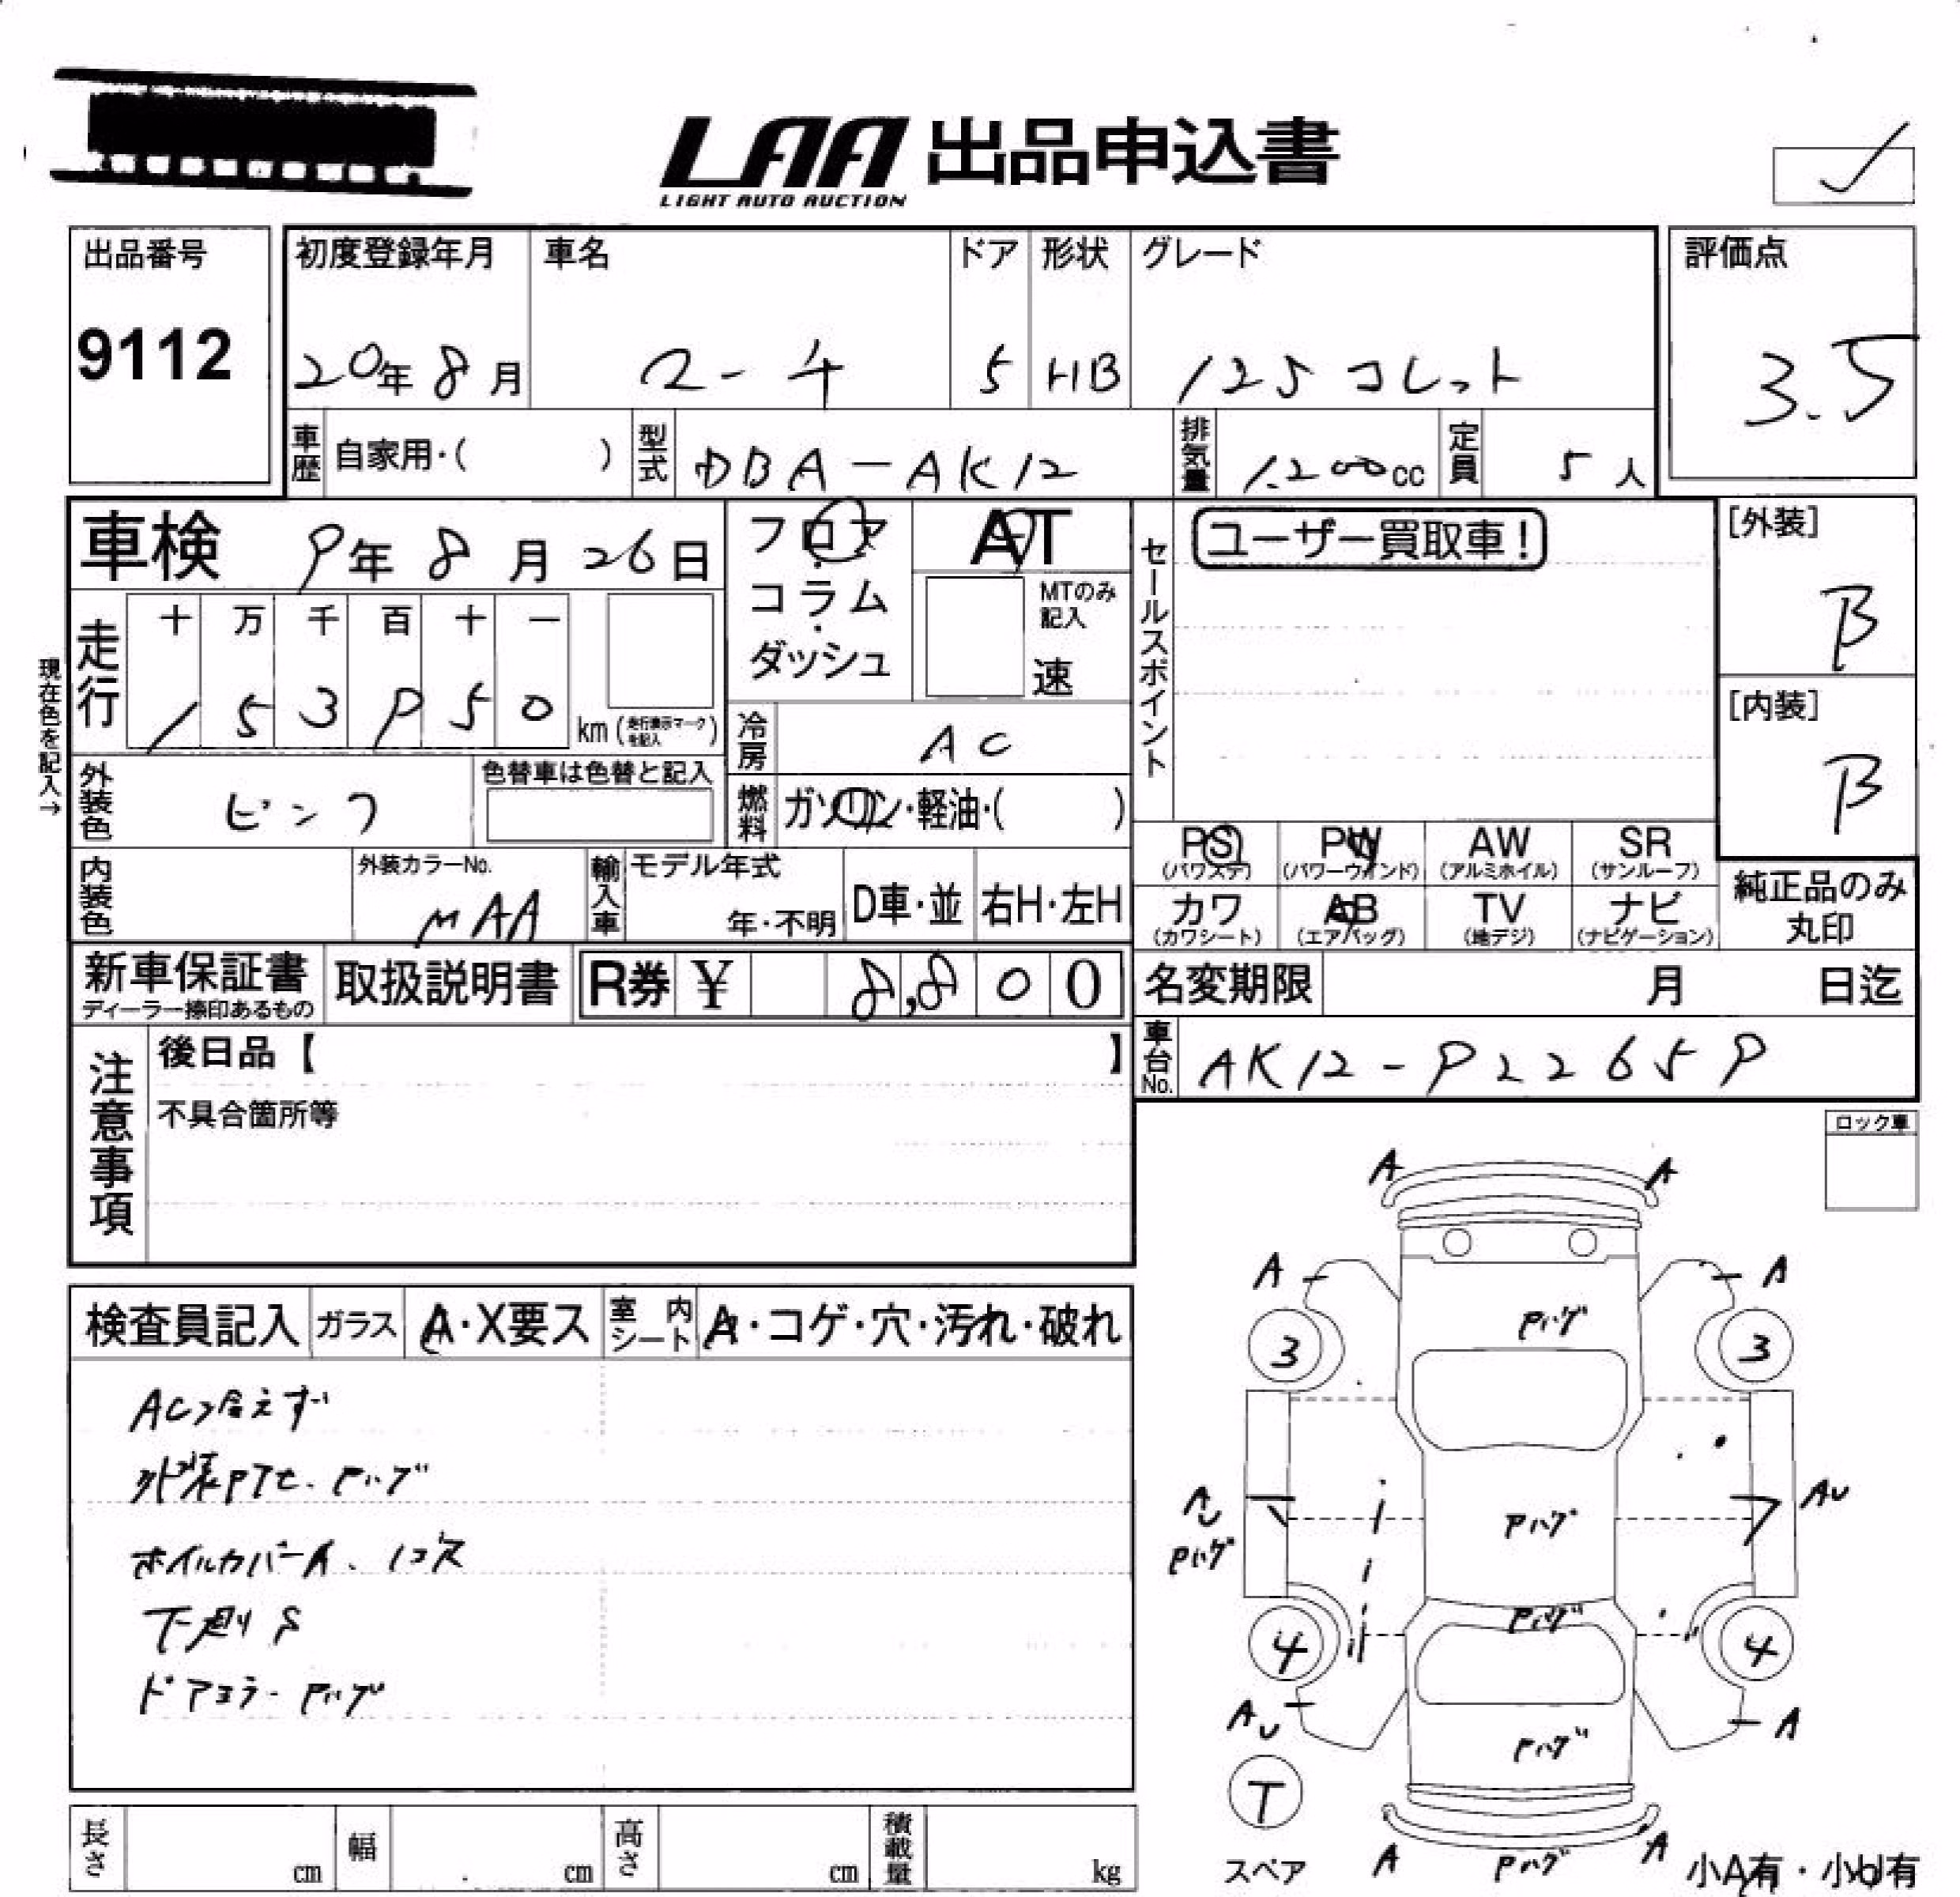 LAA 出品申込書
LIGHT AUTO AUCTION
出品番号
9112
初度登録年月 車名 ドア 形状 グレード
20年 8月 マーチ 5 HB 125 コレット
評価点
3.5
車歴 自家用・( ) 型式 DBA-AK12 排気量 1.200cc 定員 5人
車検 9年 8月 26日
フロア
・
コラム
・
ダッシュ
AT
MTのみ記入
速
セールスポイント
ユーザー買取車!
[外装]
B
[内装]
B
現在色を記入→
走行 十 万 千 百 十 一
1 5 3 9 5 0 km (走行表示マークを記入)
冷房 AC
外装色 ピンク
色替車は色替と記入
燃料 ガソリン・軽油・( )
内装色
外装カラーNo.
MAA
輸入車 モデル年式
年・不明
D車・並 右H・左H
PS (パワステ) PW (パワーウインド) AW (アルミホイル) SR (サンルーフ)
カワ (カワシート) AB (エアバッグ) TV (地デジ) ナビ (ナビゲーション)
純正品のみ
丸印
新車保証書
ディーラー捺印あるもの
取扱説明書 R券 ¥ 8,800
名変期限 月 日迄
車台No. AK12-922659
注意事項
後日品【 】
不具合箇所等
ロック車
検査員記入 ガラス A・X要ス 室内シート A・コゲ・穴・汚れ・破れ
AC冷えず
外装Pハゲ
ホイルカバーA、1コ欠
下廻りS
ドアミラーPハゲ
A A
A A
Pハゲ
3 3
AU AU
Pハゲ Pハゲ
Pハゲ
4 4
AU A
Pハゲ
T
スペア
A Pハゲ A
小A有・小U有
長さ cm 幅 cm 高さ cm 積載量 kg